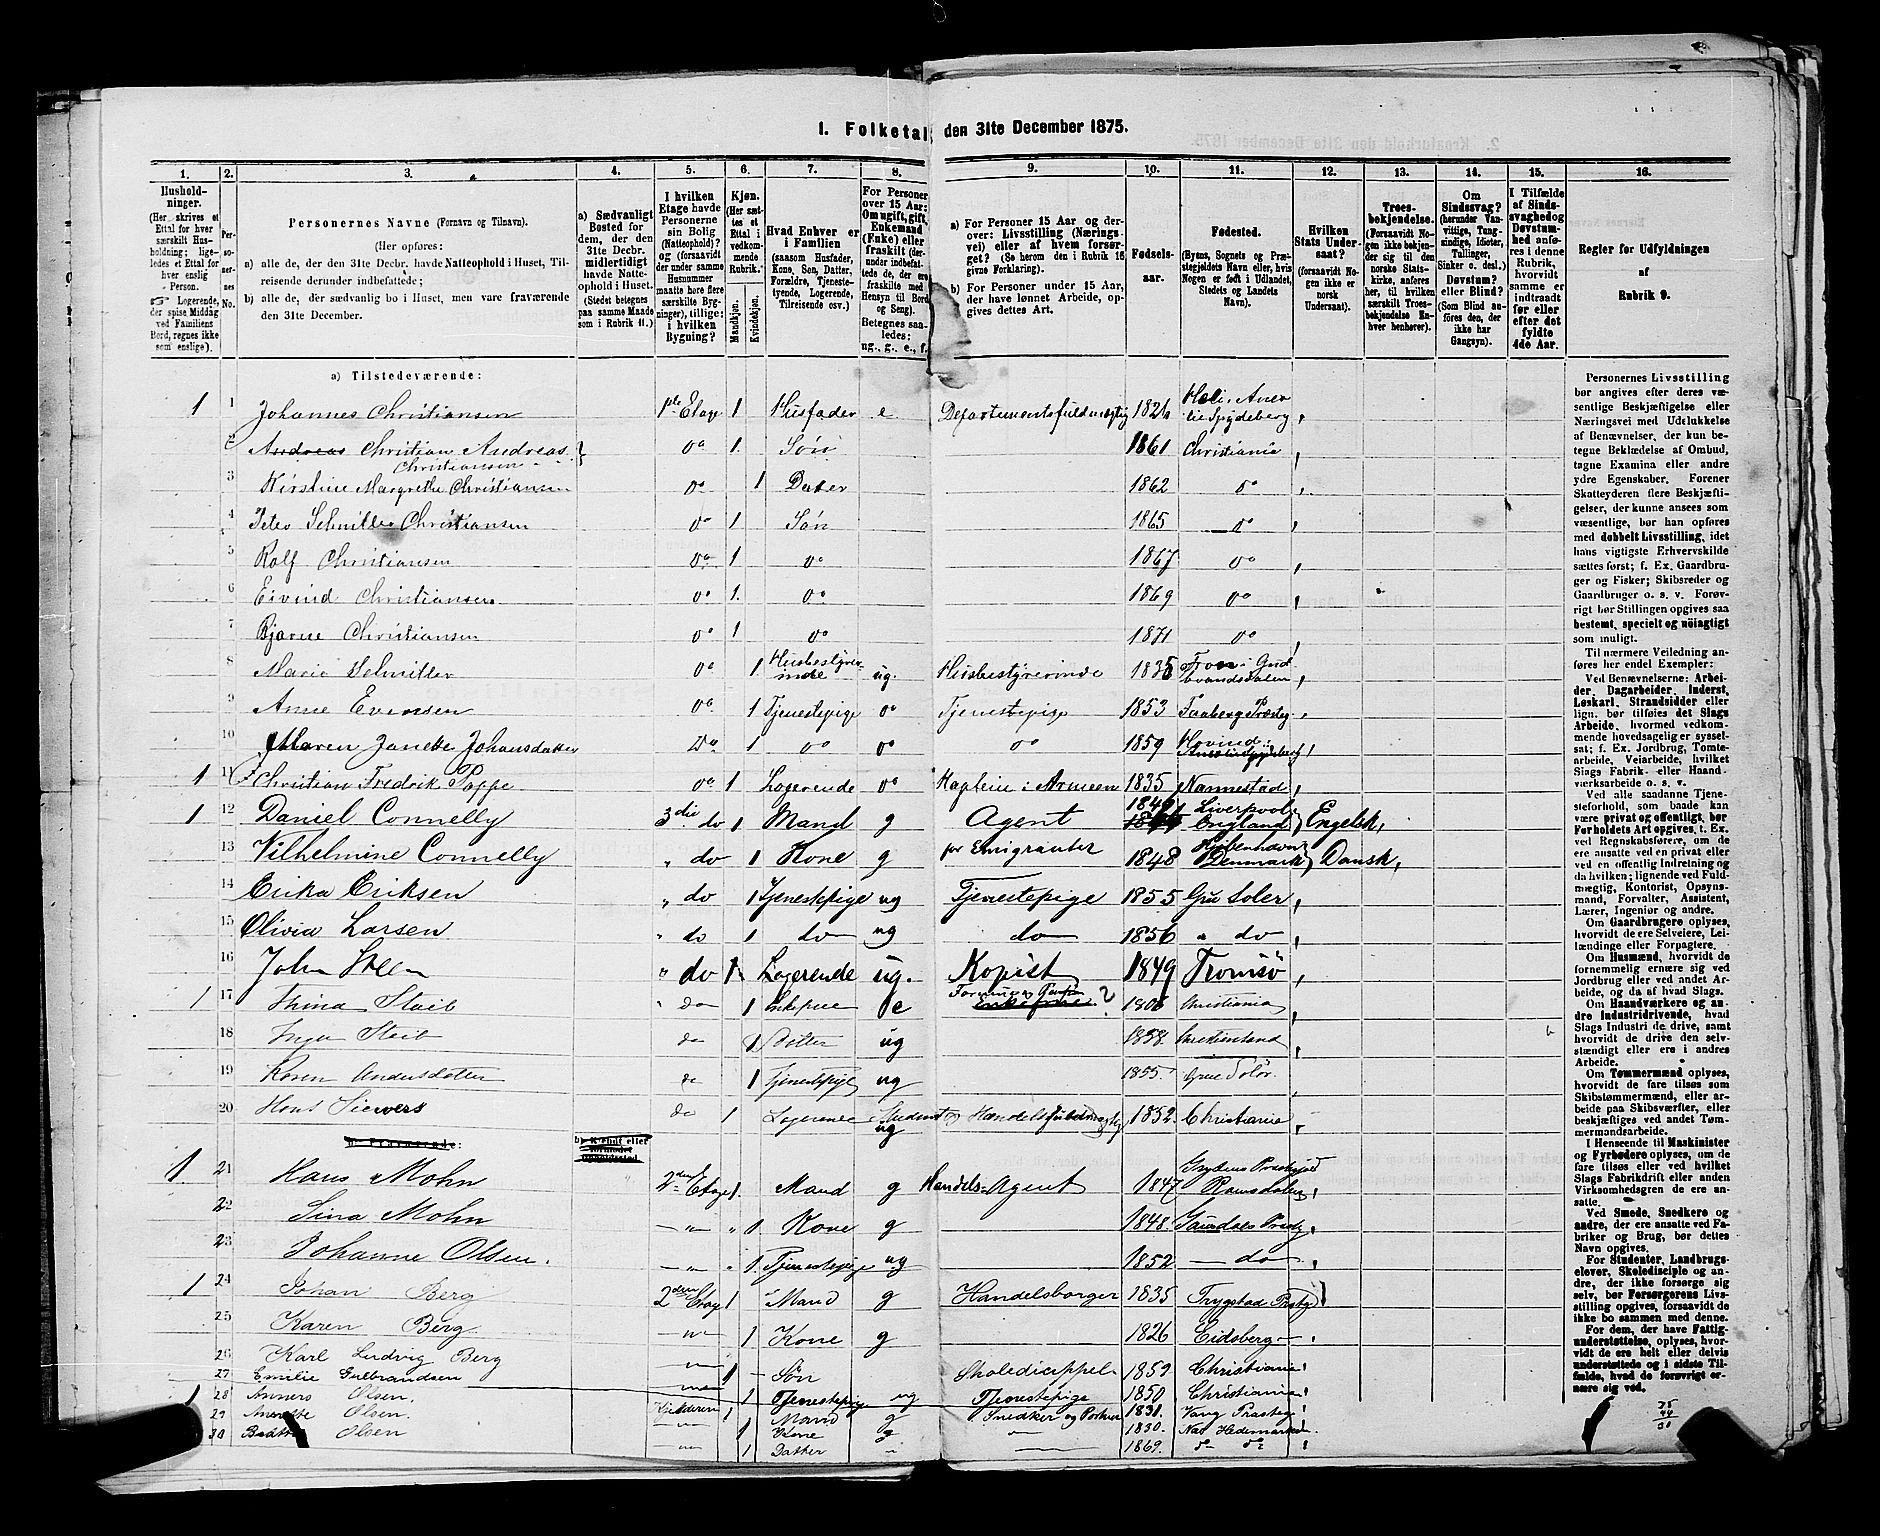 1. Folketal den 31te December 1875.
1. 2. 3. 4. 5. 6. 7. 8. 9. 10. 11. 12. 13. 14. 15. 16.
Husholdninger. (Her skrives et Ettal for hver særskilt Husholdning; ligeledes et Ettal for hver enslig Person. Logerende, der spise Middag ved Familiens Bord, regnes ikke som enslige).
Personernes No.
Personernes Navne (Fornavn og Tilnavn).
(Her opføres:
a) alle de, der den 31te Decbr. havde Natteophold i Huset, Tilreisende derunder indbefattede;
b) alle de, der sædvanlig bo i Huset, men vare fraværende den 31te December.
a) Sædvanligt Bosted for dem, der den 31te Decbr. midlertidigt havde Natteophold i Huset. (Stedet betegnes paa samme Maade som i Rubrik 11.)
I hvilken Etage havde Personerne sin Bolig (Natteophold)? og (forsaavidt der under samme Husnummer maatte høre flere særskilte Bygninger), tillige: i hvilken Bygning?
Kjøn. (Her sættes et Ettal i vedkommende Rubrik.) Mandkjøn. Kvindekjøn.
Hvad Enhver er i Familien (saasom Husfader, Kone, Søn, Datter, Forældre, Tjenestetyende, Logerende, Tilreisende osv.)
For Personer over 15 Aar: Om ugift, gift, Enkemand (Enke) eller fraskilt
Betegnes saaledes: ug., g., e., f.
a) For Personer 15 Aar og derover: Livsstilling (Næringsvei) eller af hvem forsørget? (Se herom den i Rubrik 16 givne Forklaring).
b) For Personer under 15 Aar, der have lønnet Arbeide, opgives dettes Art.
Fødselsaar.
Fødested. (Byens, Sognets og Præstegjeldets Navn eller, hvis Nogen er født i Udlandet, Stedets og Landets Navn).
Hvilken Stats Undersaat? (forsaavidt Nogen ikke er norsk Undersaat).
Troesbekjendelse. (Forsaavidt Nogen ikke bekjender sig til den norske Statskirke, anføres her, til hvilken særskilt Troesbekjendelse Enhver henhører).
Om Sindssvag? (herunder Vanvittige, Tungsindige, Idioter, Tullinger, Sinker o. desl.) Døvstum? eller Blind? (Som Blind anføres den, der ikke har Gangsyn).
I Tilfælde af Sindssvaghed og Døvstumhed anføres i denne Rubrik, hvorvidt samme er indtraadt før eller efter det fyldte 4de Aar.
Regler for Udfyldningen af Rubrik 9.
a) Tilstedeværende:
1 1 Johannes Christiansen 1ste Etage 1 Husfader e Departementsfuldmægtig 1826 Spydeberg
2 Andreas Christian Andreas Christiansen do 1 Søn 1861 Christiania
3 Kirstine Margrethe Christiansen do 1 Dater 1862 do
4 Peter Schnitler Christiansen do 1 Søn 1865 do
5 Rolf Christiansen do 1 do 1867 do
6 Eivind Christiansen do 1 do 1869 do
7 Bjarne Christiansen do 1 do 1871 do
8 Marie Schnitler do 1 Husbestyrerinde ug. Husbestyrerinde 1835 Fron i Gudbrandsdalen
9 Anne Evensen do 1 Tjenestepige do Tjenestepige 1853 Faabergs Præsteg.
10 Maren Janette Johansdatter Do 1 do do do 1859 Hovind
1 11 Christian Fredrik Poppe do 1 Logerende do Kaptein i Armeen 1835 Nannestad
1 12 Daniel Connelly 3die do 1 Mand g Agent Liverpool England Engelsk,
13 Vilhelmine Connelly " do 1 Kone g for Emigranter 1848 Kjøbenhavn Denmark Dansk,
14 Erika Eriksen " do 1 Tjenestepige ug Tjenestepige 1855 Gru Soler
15 Olivia Larsen " do 1 do ug do 1856 " do
16 John Steen " do 1 Logerende ug. Kopist 1849 Tromsö
1 17 Thina Staib " do 1 e ? Christiania
18 Inga Staib do 1 Dotter ug 1858 Christiansand
19 Karen Andersdotter do 1 Tjenestepige ug 1855 Grue Solør
20 Hans Siewers do 1 Logerende Student og Handelsfuldmægtig ug 1852 Christiania
b) Fraværende: b) Kjendt eller formodet Opholdssted.
1 21 Hans Mohn 2den Etage 1. Mand g Handels-Agent 1847 Gryttens Præstegjeld Romsdalen
22 Sina Mohn 1 Kone g 1848 Præsteg
23 Johanne Olsen. 1. Tjenestepige ug 1852 do
1 24 Johan Berg 2den Etage 1 Mand g Handelsborger 1835 Trygstad Præstg
25 Karen Berg. 1 Kone g 1826 Eidsberg
26 Karl Ludvig Berg 1 Søn Skoledicippel 1859 Christiania
27 Emilie Gulbrandsen 1 Tjenestepige ug Tjenestepige 1850 Christiania
1 28 Anners Olsen. Kjelderen 1 Mand g Snedker og 1831. Vang Præsteg
29 Annette Olsen. 1 Kone g 1830. Næs Hedemarken
30 Olsen 1 Datter 1869. do do
Personernes Livsstilling bør angives efter deres væsentlige Beskjæftigelse eller Næringsvei med Udelukkelse af Benævnelser, der kun betegne Beklædelse af Ombud, tagne Examina eller andre ydre Egenskaber. Forener Skatteyderen flere Beskjæftigelser, der kunne ansees som væsentlige, bør han opføres med dobbelt Livsstilling, idet hans vigtigste Erhvervskilde sættes først; f. Ex. Gaardbruger og Fisker; Skibsreder og Gaardbruger o. s. v. Forøvrigt bør Stillingen opgives saa bestemt, specielt og nöiagtigt som muligt.
Til nærmere Veiledning anføres her endel Exempler:
Ved Benævnelserne: Arbeider, Dagarbeider, Inderst, Løskarl, Strandsidder eller lign. bør tilføies det Slags Arbeide, hvormed vedkommende hovedsagelig er sysselsat; f. Ex. Jordbrug, Tomtearbeide, Veiarbeide, hvilket Slags Fabrik- eller Haandværksarbeide o. s. v.
Ved alle saadanne Tjenesteforhold, som baade kan være privat og offentligt, bør Forholdets Art opgives, t. Ex. ved Regnskabsførere, om de ere ansatte ved en privat eller ved en offentlig Indretning og da hvilken; lignende ved Fuldmægtig, Kontorist, Opsynsmand, Forvalter, Assistent, Lærer, Ingeniør og andre.
Om Gaardbrugere oplyses, hvorvidt de ere Selveiere, Leilændinge eller Forpagtere.
Om Husmænd, hvorvidt de fornemmelig ernære sig ved Jordbrug eller ved andet Arbeide, og da af hvad Slags.
Om Haandværkere og andre Industridrivende, hvad Slags Industri de drive, samt hvorvidt de drive den selvstændigt eller ere i andres Arbeide.
Om Tømmermænd oplyses, hvorvidt de fare tilsøs som Skibstømmermænd, eller arbeide paa Skibsværfter, eller beskjæftiges ved andet Tømmermandsarbeide.
I Henseende til Maskinister og Fyrbødere oplyses, om de fare tilsøs eller ved hvilket Slags Fabrikdrift eller anden Virksomhedsgren de ere ansatte.
Ved Smede, Snedkere og andre, der ere ansatte ved Fabriker og Brug, bør dettes Navn opgives.
For Studenter, Landbrugselever, Skoledisciple og andre, der ikke forsørge sig selv, bør Forsørgerens Livsstilling opgives, forsaavidt de ikke bo sammen med denne.
For dem, der have Fattigunderstøttelse, oplyses, hvorvidt de ere helt eller delvis understøttede og i sidste Tilfælde, hvad de forøvrigt ernære sig ved.